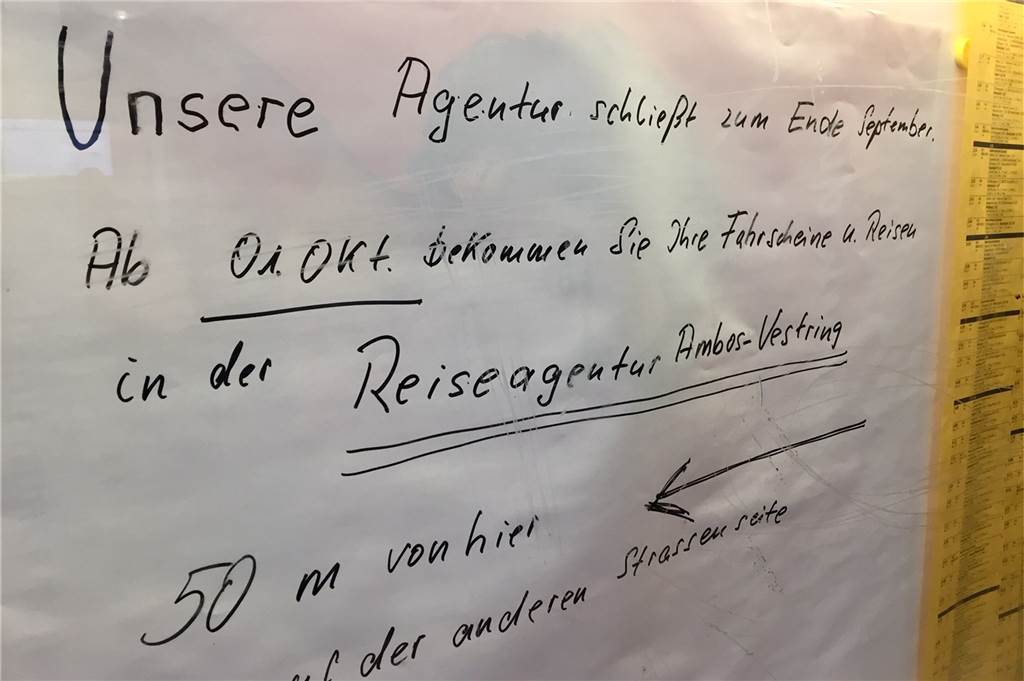 Unsere Agentur schließt zum Ende September.
Ab 01. Okt. bekommen Sie Ihre Fahrscheine u. Reisen
in der Reiseagentur Ambos-Vestring
50 m von hier
auf der anderen Strassenseite